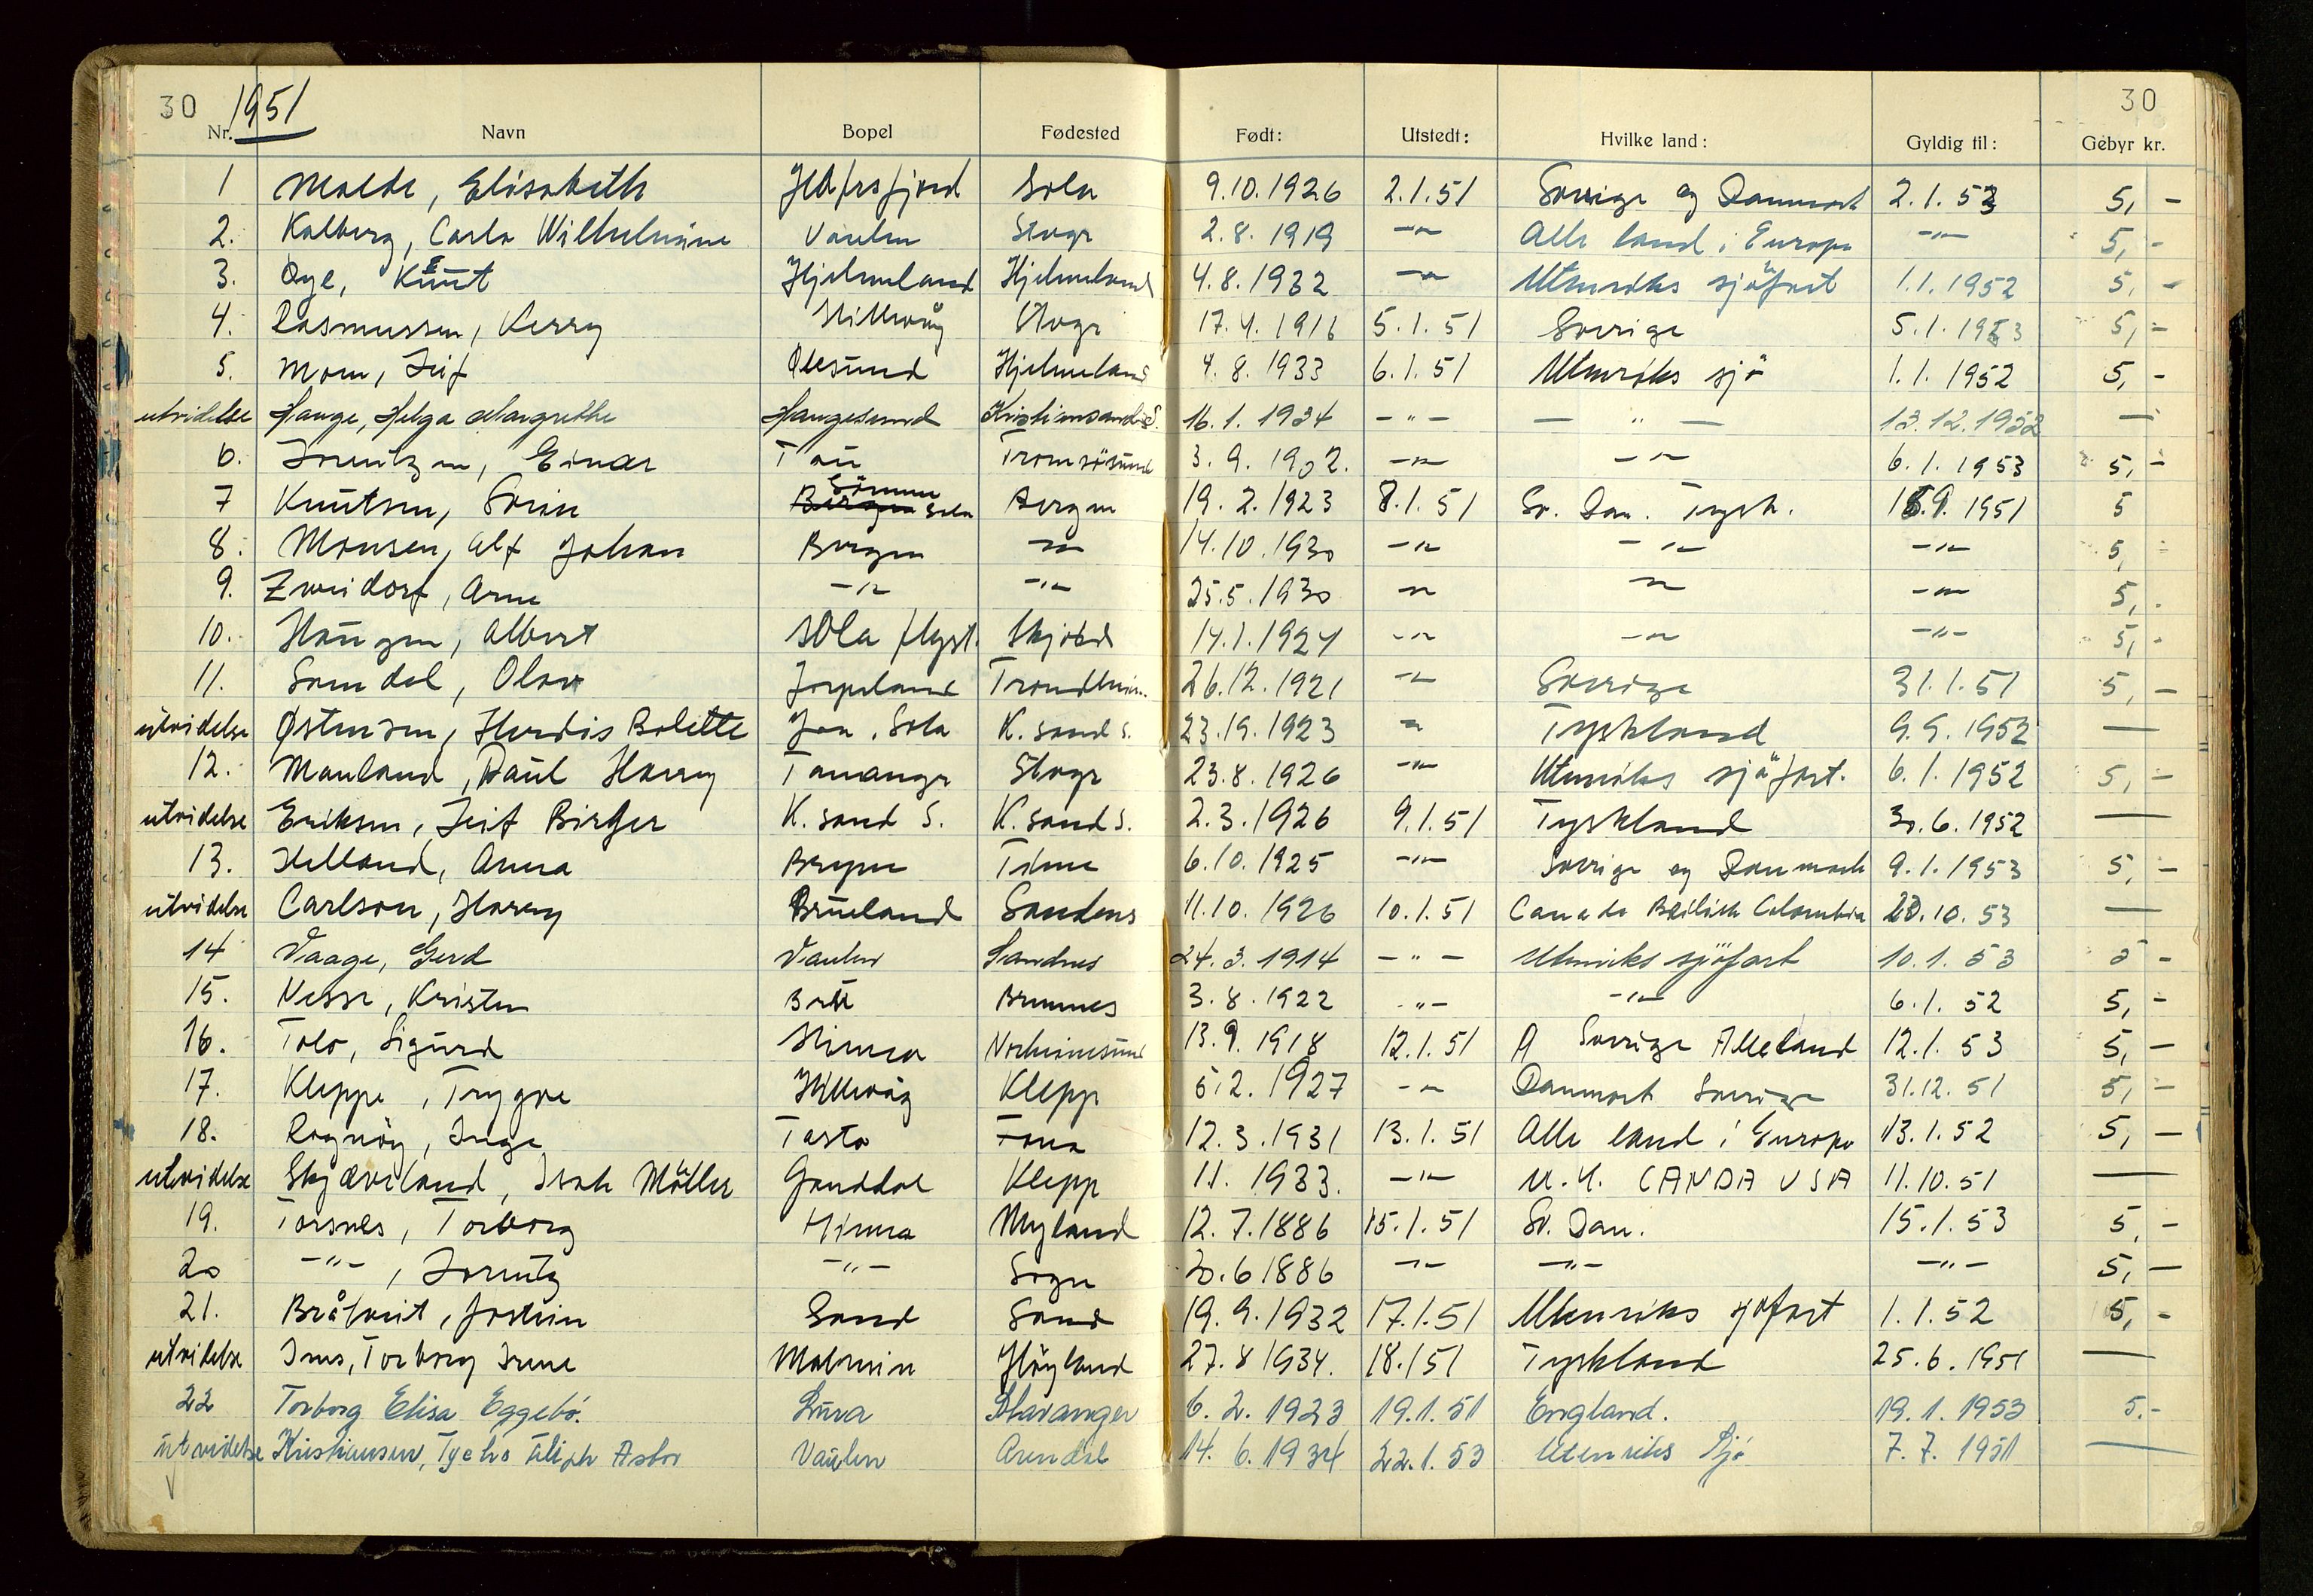 30 1951 30
Nr. Navn Bopel Fødested Født: Utstedt: Hvilke land: Gyldig til: Gebyr kr.
1 Malde, Elisabeth Hafrsfjord Sola 9.10.1926 2.1.51 Sverige og Danmark 2.1.53 5,-
2. Kalberg, Carla Wilhelmine Vaulen Stvgr 2.8.1919 -"- Alle land i Europa -"- 5,-
3. Øye, Knut Hjelmeland Hjelmeland 4.8.1932 -"- Utenriks sjöfart 1.1.1952 5,-
4. Rasmussen, Kerry Hillevåg Stvgr 17.4.1916 5.1.51 Sverige 5.1.1953 5,-
5. Moen, Leif Ølesund Hjelmeland 4.8.1933 6.1.51 Utenriks sjö 1.1.1952 5,-
utvidelse Hauge, Helga Margrethe Haugesund Kristiansand S. 16.1.1934 -"- -"- 13.12.1952 —
6. Lorentzen, Einar Tau Tromsösund 3.9.1902. -"- -"- 6.1.1953 5,-
7 Knutsen, Sørin Bergen Sömme Sola Bergen 19.2.1923 8.1.51 Sv. Dan. Tysk. 1951 5
8. Monsen, Alf Johan Bergen -"- 14.10.1930 -"- -"- -"- 5,-
9. Zweidorf, Arne -"- -"- 25.5.1930 -"- -"- -"- 5,-
10. Haugen, Albert Sola flypl. 14.1.1924 -"- -"- -"- 5,-
11. Somdal, Olav Jørpeland Trondheim 26.12.1921 -"- Sverige 31.1.51 5,-
utvidelse Østensen, Herdis Bolette Sola K. sand S. 23.19.1923 -"- Tyskland 9.9.1952 —
12. Mauland, Paul Harry Tananger Stvgr 23.8.1926 -"- Utenriks sjöfart. 6.1.1952 5,-
utvidelse Eriksen, Leif Birger K. sand S. K. sand S. 2.3.1926 9.1.51 Tyskland 30.6.1952 —
13. Helland, Anna Bryne Time 6.10.1925 -"- Sverige og Danmark 9.1.1953 5,-
utvidelse Carlson, Harry Brueland Sandnes 11.10.1926 10.1.51 Canada British Colombia 20.10.53 —
14 Vaage, Gerd Vaulen Sandnes 24.3.1914 -"- Utenriks sjöfart 10.1.53 5 -
15. Nesse, Kristen Bremnes 3.8.1922 -"- -"- 6.1.52 5,-
16. Tolo, Sigurd Hinna Norheimsund 13.9.1918 12.1.51 Sverige Alle land 12.1.53 5,-
17. Kleppe, Trygve Hillevåg Klepp 5.2.1927 -"- Danmark Sverige 31.12.51 5,-
18. Rognöy, Inge Tasta 12.3.1931 13.1.51 Alle land i Europa 13.1.52 5,-
utvidelse Skjæveland, Isak Möller Ganddal Klepp 1.1.1933. -"- CANDA USA 11.10.51 —
19. Torsnes, Torborg Hinna Myland 12.7.1886 15.1.51 Sv. Dan. 15.1.53 5,-
20 -"-, Lorentz -"- Sogn 20.6 1886 -"- -"- -"- 5,-
21. Bråtveit, Jostein Sand Sand 19.9.1932 17.1.51 Utenriks sjøfart 1.1.52 5,-
utvidelse Ims, Torborg Irene Malmsin Höyland 27.8 1934. 18.1 51 Tyskland 25.6.1951 —
22 Torborg Elisa Eggebö. Lura Stavanger 6.2.1923 19.1.51 England. 19.1.1953 5.-
utvidelse Kristiansen, Tycho Asbor Vaulen Arendal 14.6.1934 22.1.53 Utenriks Sjö 7.7.1951 —